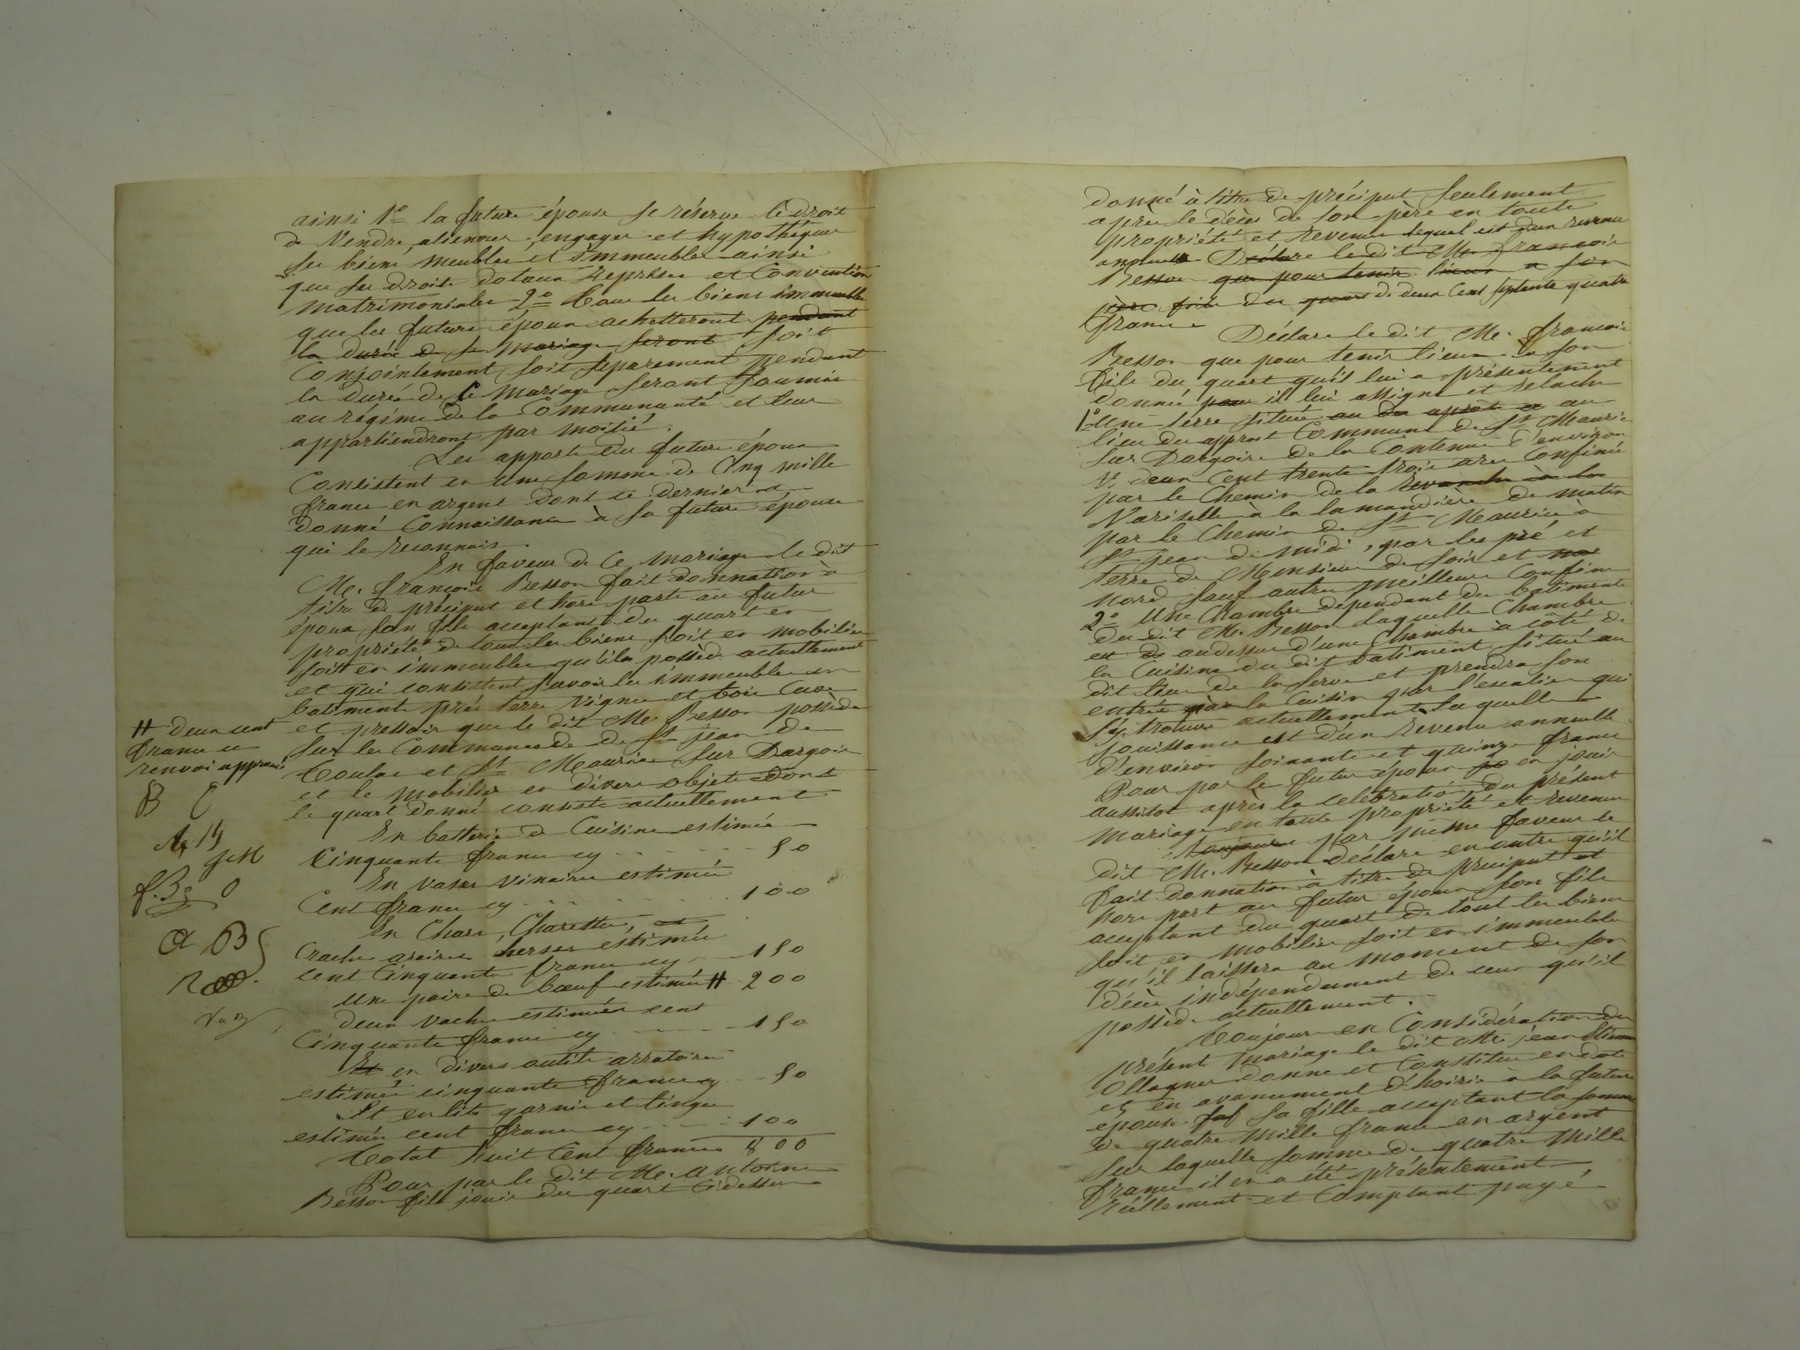 ainsi 1º la future épouse se réserve le droit
de Vendre, alienner, engager et hypothequer
ses biens meubles et immeubles ainsi
que ses droits dotaux reprises et Convention
matrimoniales 2º tous les biens immeubles
que les futurs époux achetteront pendant
la durée de le mariage seront soit
Conjointement soit separement pendant
la durée de le mariage seront soumis
au régime de la Communauté et leur
appartiendront par moitié.
Les apports du future époux
Consistent en une somme de Cinq mille
francs en argent dont ce dernier a
donné Connaissance à sa future épouse
qui le reconnais.
En faveur de Ce mariage le dit
Me. françois Besson fait donnation à
titre de préciput et hors parts au futur
époux son fils acceptant du quart en
propriété de tous les biens soit en mobilier
soit en immeubles qu'ila possède actuellement
et qui consistent savoir les immeubles en
batiments prés terre vignes et bois Cave
et pressoir que le dit Me. Besson possède
sur les Communes de de St jean de
Toulas et St Maurice sur Dargoir
et le mobilier en divers objets dont
le quart donné consiste actuellement
En batterie de Cuisine estimée
Cinquante francs cy 50
En vases vinaires estimés
Cent francs cy 100
En Chars, Charettes, et
araires herses estimés
cent Cinquante francs cy 150
Une paire de boeuf estimés # 200
deux vaches estimées cent
Cinquante francs cy 150
Et en divers outils arratoires
estimés cinquante francs cy 50
Et en lits garnis et linges
estimés cent francs cy 100
Total huit Cent francs 800
Pour par le dit Me. Antoine
Besson fils jouir du quart Cidessus
# deux cent
francs cy
renvoi approuvé
B
JM
f. B
A B
donné à titre de préciput seulement
après le décès de son père en toute
propriété et revenus lequel est d'un revenu
annuelle Déclare le dit Me. françois
Besson que pour tenir lieux a son
père fils du quart de deux Cent septante quatre
francs
Déclare le dit Me. françois
Besson que pour tenir lieux à son
fils du quart qu'il lui a présentement
donné pour il lui assigne et relache
1º Une terre située au au
lieu du appret Commune de St Mauri-
sur Dargoire de la Contenue d'environ
deux Cent trente trois ares Confinée
par le Chemin de la
à la la mandière de matin
par le Chemin de St Maurice à
St jean de midi, par les pré et
terre de Monsieur de soir et
nord sauf autres meilleurs Confins
2º Une Chambre dépendant du batiment
du dit Me. Besson laquelle Chambre
est audessus d'une Chambre à côté de
la Cuisine du dit batiment situé au
dit lieu de la Serve et prendra son
entrée par la Cuisine par l'escalier qui
s'y trouve actuellement laquelle
jouissance est d'un revenu annuelle
d'environ soixante et quinze francs
Pour par le futur époux en jouir
aussitot après la célébration du présent
mariage en toute propriété et revenu
Toujours par même faveur le
dit Me. Besson déclare en outre qu'il
fait donnation à titre de préciput et
hors part au futur époux son fils
acceptant du quart de tout les biens
soit en mobilier soit en immeubles
qu'il laissera au moment de son
décès indépendament de ceux qu'il
possède actuellement.
Toujours en Considération du
présent mariage le dit Me jean
Ollagner donne et Constitue en dot
et en avancement d'hoirie à la future
épouse sa fille acceptant la somme
de quatre mille francs en argent
sur laquelle somme de quatre mille
francs il en a été présentement
réellement et Comptant payé